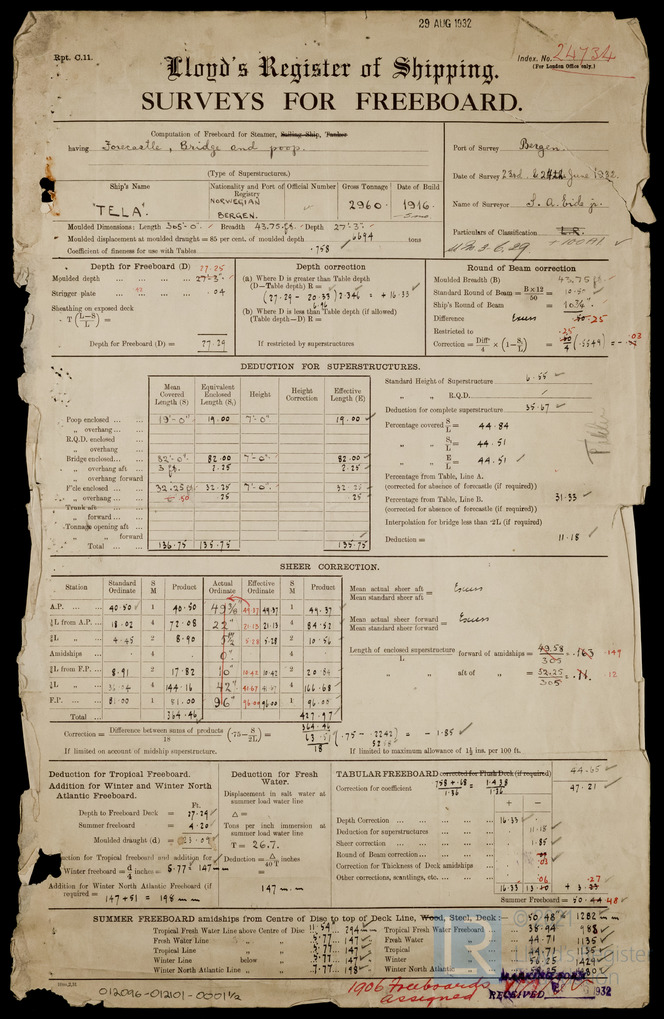 29 AUG 1932
Rpt. C.11.
Index. No. 24734
(For London Office only.)
Lloyd's Register of Shipping.
SURVEYS FOR FREEBOARD.
Computation of Freeboard for Steamer, Sailing Ship, Tanker
having Forecastle, Bridge and poop.
(Type of Superstructures.)
Port of Survey Bergen.
Date of Survey 23rd & 24th June 1932.
Name of Surveyor S. A. Eide jr.
Particulars of Classification L.R. +100A1
Ship's Name
Nationality and Port of Registry
Official Number
Gross Tonnage
Date of Build
"TELA".
NORWEGIAN
BERGEN.
2960
1916
Moulded Dimensions: Length 305'-0" Breadth 43.75 ft. Depth 27'-3"
Moulded displacement at moulded draught = 85 per cent. of moulded depth 6694 tons
Coefficient of fineness for use with Tables .758
Depth for Freeboard (D)
27.25
Moulded depth ... 27'-3"
Stringer plate ... .04
Sheathing on exposed deck
T (L-S/L) =
Depth for Freeboard (D) = 27.29
Depth correction
(a) Where D is greater than Table depth
(D—Table depth) R =
(27.29 - 20.33) 2.346 = + 16.33
6.96
(b) Where D is less than Table depth (if allowed)
(Table depth—D) R =
If restricted by superstructures
Round of Beam correction
Moulded Breadth (B) 43.75 ft.
Standard Round of Beam = B×12/50 = 10.50
Ship's Round of Beam = 10¾"
Difference Excess .25
Restricted to
Correction = Diff/4 × (1-S₁/L) = .25/4 (.5549) = -.03
DEDUCTION FOR SUPERSTRUCTURES.
Mean Covered Length (S)
Equivalent Enclosed Length (S₁)
Height
Height Correction
Effective Length (E)
Poop enclosed ... 19'-0" 19.00 7'-0" 19.00
„ overhang ...
R.Q.D. enclosed
„ overhang
Bridge enclosed ... 82'-0" 82.00 7'-0" 82.00
„ overhang aft 3 ft. 2.25 2.25
„ overhang forward
F'cle enclosed ... 32.25 ft. 32.25 7'-0" 32.25
„ overhang ... .50 .25 25
Trunk aft ...
„ forward ...
Tonnage opening aft ...
„ „ forward
Total ... 136.75 135.75 135.75
Standard Height of Superstructure 6.55
„ „ R.Q.D.
Deduction for complete superstructure 35.67
Percentage covered S/L = 44.84
„ „ S₁/L = 44.51
„ „ E/L = 44.51
Percentage from Table, Line A.
(corrected for absence of forecastle (if required))
Percentage from Table, Line B. 31.33
(corrected for absence of forecastle (if required))
Interpolation for bridge less than ·2L (if required)
Deduction = 11.18
SHEER CORRECTION.
Station
Standard Ordinate
S M
Product
Actual Ordinate
Effective Ordinate
S M
Product
A.P. ... 40.50 1 40.50 49⅜" 49.37 49.37 1 49.37
⅙L from A.P. ... 18.02 4 72.08 22" 21.13 21.13 4 84.52
⅓L „ ... 4.45 2 8.90 5½ 5.28 5.28 2 10.56
Amidships ... 4 0" 4
⅓L from F.P. ... 8.91 2 17.82 10" 10.42 10.42 2 20.84
⅙L „ ... 36.04 4 144.16 42" 41.67 41.67 4 166.68
F.P. ... 81.00 1 81.00 96" 96.00 96.00 1 96.00
Total ... 364.46 427.97
Mean actual sheer aft / Mean standard sheer aft = Excess
Mean actual sheer forward / Mean standard sheer forward = Excess
Length of enclosed superstructure / L forward of amidships = 49.58/305 = .163 .149
„ „ aft of „ = 52.25/305 = .17 .12
Correction = Difference between sums of products / 18 (·75 - S/2L) = 364.46 63.51/18 (.75 - .2242) = - 1.85
.5258
If limited on account of midship superstructure.
If limited to maximum allowance of 1½ ins. per 100 ft.
Deduction for Tropical Freeboard.
Addition for Winter and Winter North Atlantic Freeboard.
Ft.
Depth to Freeboard Deck = 27.29
Summer freeboard = 4.20
Moulded draught (d) = 23.09
Deduction for Tropical freeboard and addition for
Winter freeboard = d/4 inches = 5.77" 147 m.m
Addition for Winter North Atlantic Freeboard (if required) =
147+51 = 198 m.m
Deduction for Fresh Water.
Displacement in salt water at summer load water line
Δ =
Tons per inch immersion at summer load water line
T = 26.7.
Deduction = Δ/40T inches
=
147 m.m.
TABULAR FREEBOARD corrected for Flush Deck (if required) 44.65
Correction for coefficient .758+.68/1.36 = 1.438/1.36 47.21
+ -
Depth Correction ... 16.33
Deduction for superstructures ... 11.18
Sheer correction ... 1.85
Round of Beam correction ... .03
Correction for Thickness of Deck amidships
Other corrections, scantlings, etc. ... .06 .27
16.33
Summer Freeboard = 50.48
SUMMER FREEBOARD amidships from Centre of Disc to top of Deck Line, Wood, Steel, Deck :— 50.48" 1282 m.m
Tropical Fresh Water Line above Centre of Disc 11.54" 294 m.m
Fresh Water Line „ „ 5.77 147
Tropical Line „ „ 5.77 147
Winter Line below „ „ 5.77 147
Winter North Atlantic Line „ „ 7.77 198
Tropical Fresh Water Freeboard 38.94 988
Fresh Water „ 44.71 1135
Tropical „ 44.71 1135
Winter „ 56.25 1429
Winter North Atlantic „
1906 Freeboards
assigned
RECEIVED
1932
012096-012101-0001½